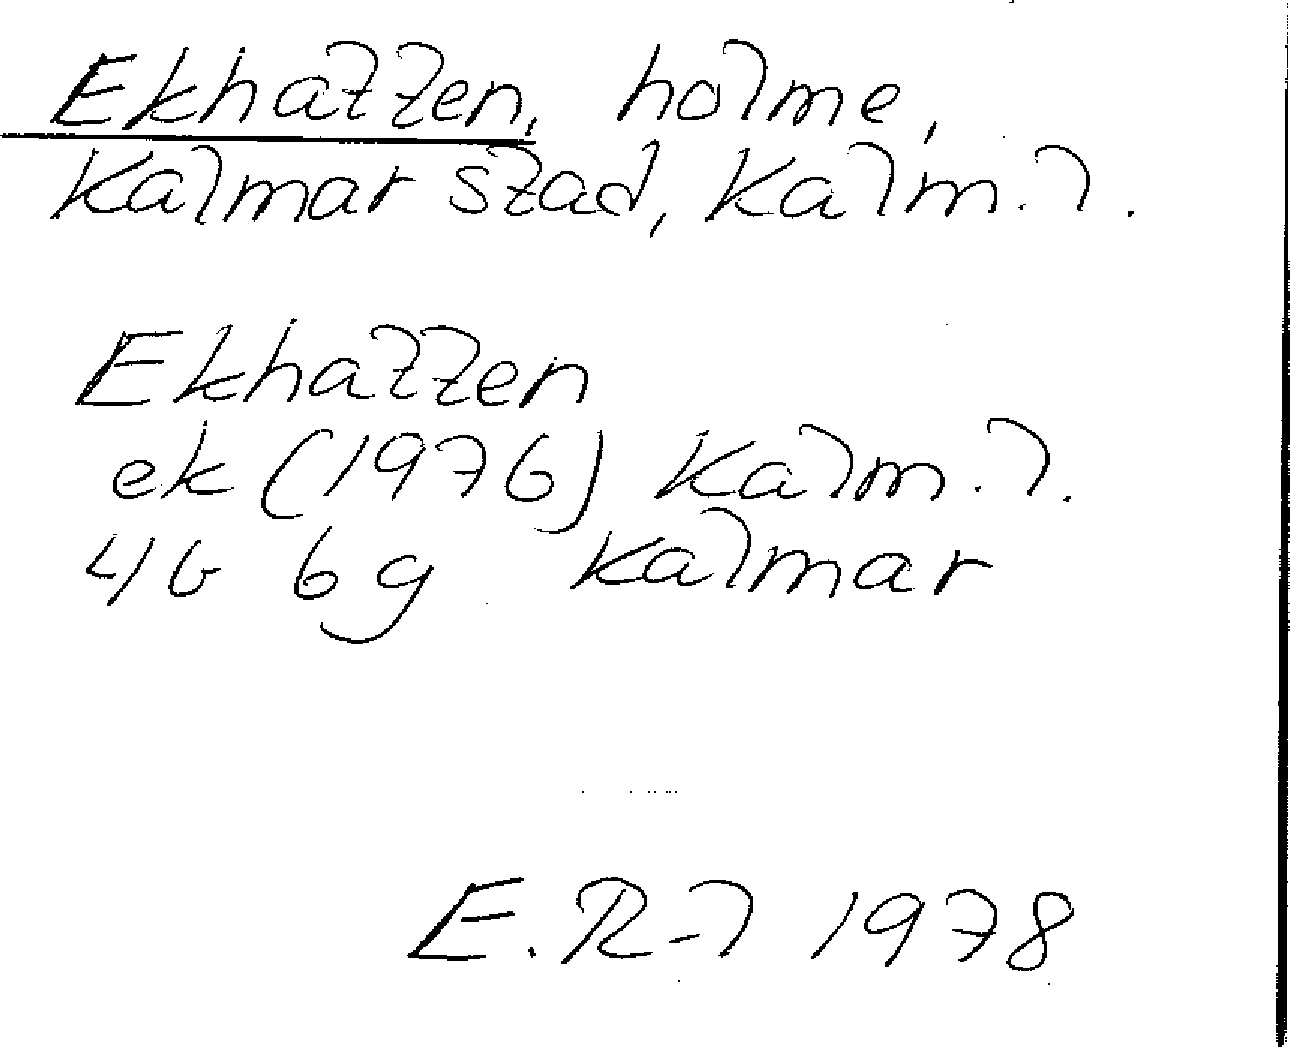 Ekhatten, holme,
Kalmar stad, Kalm. l.
Ekhatten
ek (1976) Kalm. l.
4G 6g Kalmar
E. R-l 1978